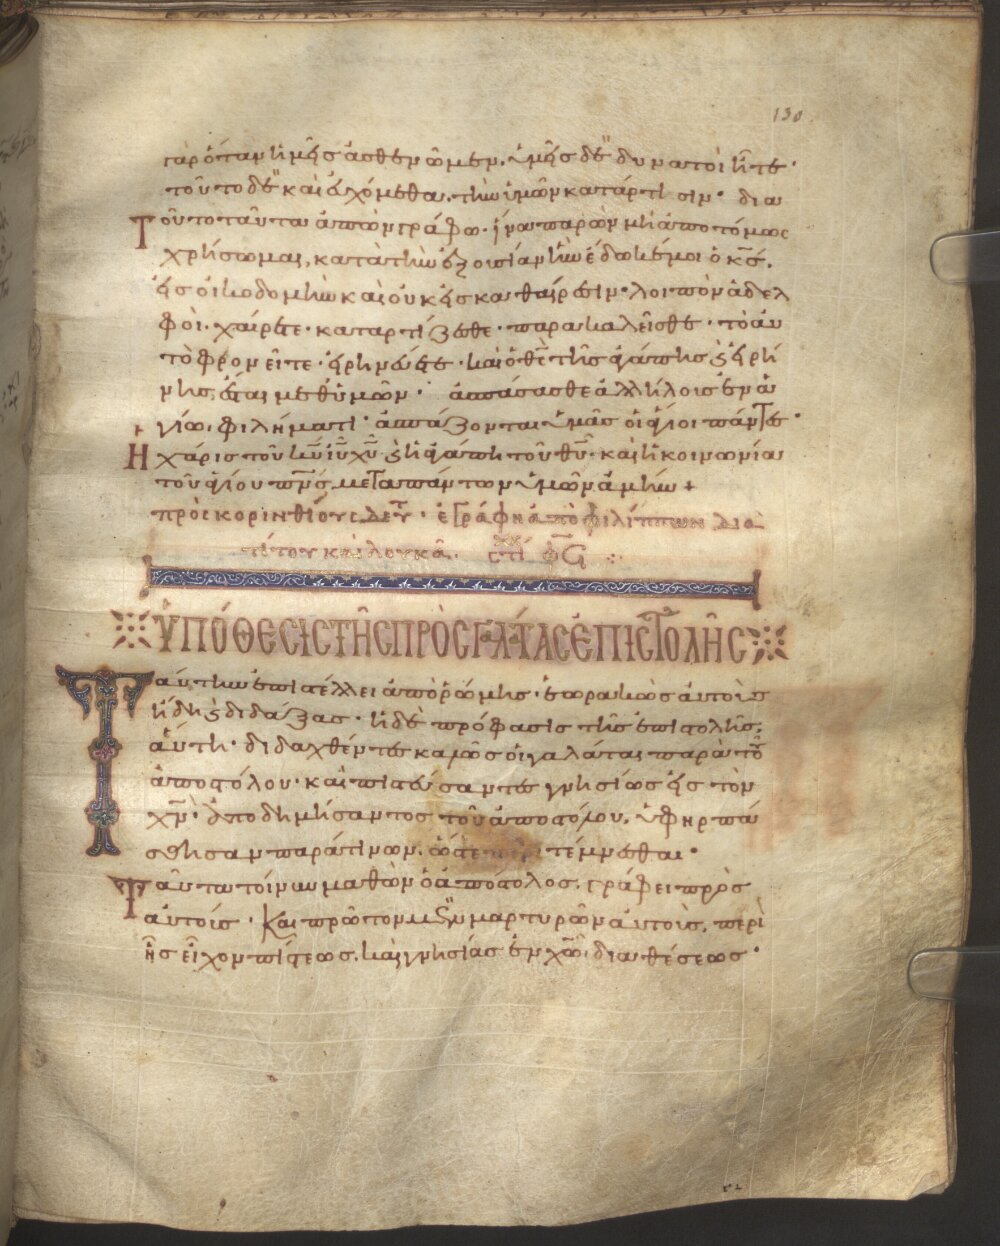 130
γὰρ ὅταν ἡμεῖς ἀσθενῶμεν. ὑμεῖς δὲ δυνατοὶ ἦτε·
τοῦτο δὲ καὶ εὐχόμεθα. τὴν ὑμῶν κατάρτισιν· δια
Τοῦτο ταῦτα ἀπὼν γράφω· ἵνα παρὼν μὴ ἀποτόμως
χρήσωμαι, κατὰ τὴν ἐξουσίαν ἣν ἔδωκέ μοι ὁ κ̅ς̅.
εἰς οἰκοδομὴν καὶ οὐκ εἰς καθαίρεσιν· λοιπὸν ἀδελ
φοὶ· χαίρετε· καταρτίζεσθε· παρακαλεῖσθε· τὸ αυ
τὸ φρονεῖτε· εἰρηνεύετε· καὶ ὁ θ̅ς̅ τῆς ἀγάπης ϗ εἰρή
νης, ἔσται μεθ ὑμῶν· ἀσπάσασθε ἀλλήλοις ἐν ἁ
γίω. φιλήματι· ἀσπάζονται ὑμᾶς οἱ ἅγιοι πάντες·
Ἡ χάρις τοῦ κ̅υ̅ ι̅υ̅ χ̅υ̅ ϗ ἡ ἀγάπη τοῦ θ̅υ̅· καὶ ἡ κοινωνία
τοῦ ἁγίου π̅ν̅ς̅. μετὰ πάντων ὑμῶν ἀμήν +
πρὸς κορινθίους δευ· ἐγράφη ἀπὸ φιλίππων δια
τίτου καὶ λουκᾶ· στί
ὙΠΌΘΕΣΙΣ ΤῆΣ ΠΡῸΣ ΓΑΛΆΤΑΣ ἘΠΙΣΤΟΛῆΣ
Ταύτην ἐπιστέλλει ἀπὸ ῥώμης· ἑωρακὼς αὐτοὺς
ἤδη ϗ διδάξας· ἡ δὲ πρόφασις τῆς ἐπιστολῆς,
αὕτη· διδαχθέντες καλῶς οἱ γαλάται παρὰ τοῦ
ἀποστόλου· καὶ πιστεύσαντες γνησίως εἰς τὸν
χ̅ν̅· ἀποδημήσαντος τοῦ ἀποστόλου, ὑφηρπά
σθησαν παρά τινων. ὥστε περιτέμνεσθαι·
Ταῦτα τοίνυν μαθὼν ὁ ἀπόστολος, γράφει πρὸς
αὐτούς· Και πρῶτον μὲν μαρτυρῶν αὐτοῖς, περὶ
ἧς εἶχον πίστεως, καὶ γνησίας ἐν χ̅ω̅ διαθέσεως·